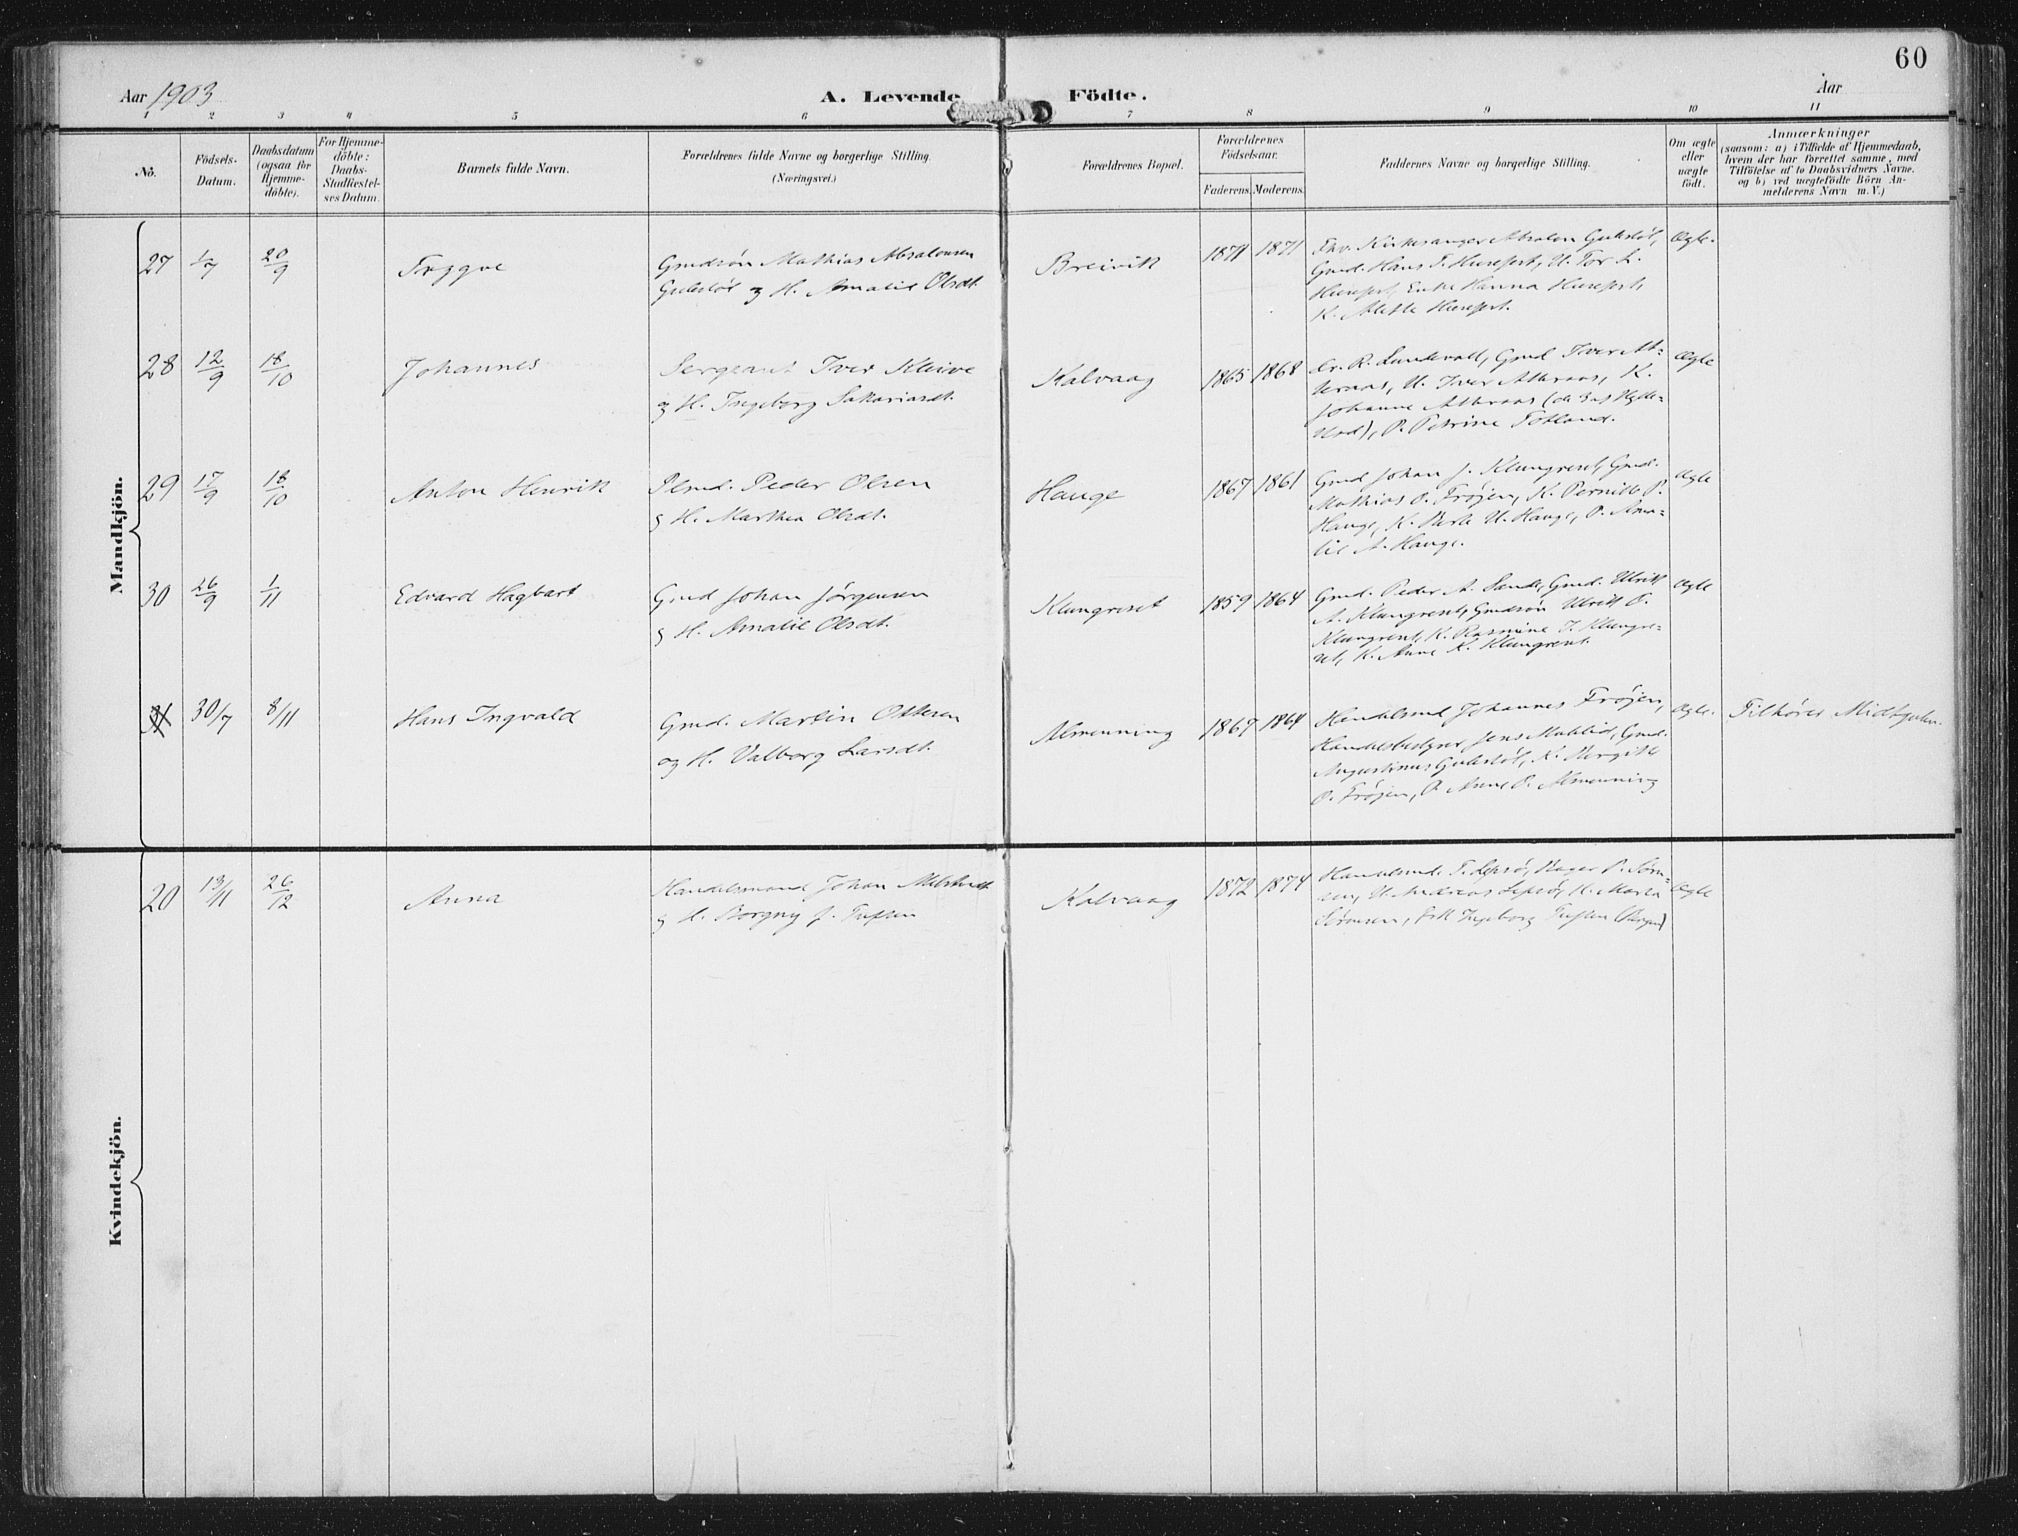 60
Aar 1903
A. Levende Födte.
Aar
1 2 3 4 5 6 7 8 9 10 11
No.
Födsels-
Datum.
Daabsdatum
(ogsaa for
Hjemme-
döbte).
For Hjemme-
döbte:
Daabs-
Stadfæstel-
ses Datum.
Barnets fulde Navn.
Forældrenes fulde Navne og borgerlige Stilling
(Næringsvei.)
Forældrenes Bopæl.
Forældrenes
Födselsaar.
Faderens. Moderens.
Faddernes Navne og borgerlige Stilling.
Om ægte
eller
uægte
födt.
Anmærkninger
(saasom: a) i Tilfælde af Hjemmedaab,
hvem der har forrettet samme, med
Tilföielse af to Daabsvidners Navne.
og b) ved uægtefödte Börn An-
melderens Navn m. V.)
Mandkjön.
27 1/7 20/9
Tryggve
Gmdsøn Mathias Absalonsen
og H. Amalie Olsdt.
Breivik
1871
Kirkesanger Absalon
Gmd. Hans
Enke Hanna
K. Mette
Ægte.
28 12/9 18/10
Johannes
Sergeant Iver Kleive
og H. Ingeborg Sakariasdt.
Kalvaag
1865 1868
Gmd Iver
U. Iver K.
Johanne
P. Petrine Totland.
Ægte
29 17/9 18/10
Anton Henrik
Peder Olsen
og H. Marthea Olsdt.
Hauge
1867 1861
Gmd Johan J. Klungreset, Gmd.
Mathias O. Frøjen, K. Pernille P.
Hauge, K. U. Hauge, P. Ama-
lie A. Hauge.
Ægte
30 26/9 1/11
Edvard Hagbart
Gmd Johan Jørgensen
og H. Amalie Olsdt.
Klungreset
1859 1864
Gmd. Peder A. Sande, Gmd. Ulrik
A. Klungreset, Gmdsøn Ulrik O.
Klungreset, K. Rasmine J. Klungre-
set, K. Anne K. Klungreset.
Ægte
31 30/7 8/11
Hans Ingvald
Gmd. Martin Ottesen
og H. Valborg Larsdt.
Almenning
1867 1864
Handelsmd Johannes Frøjen,
Handelsbestyrer Jens Gmd.
Augustinus K. Birgitte
O. Frøjen, P. Anne P. Almenning
Ægte.
Tilhører Midtgulen.
Kvindekjön.
20 13/11 26/12
Anna
Handelsmand Johan
og H. Borgny J. Tuften
Kalvaag
1872 1874
Handelsmd. T. Lepsø, Bager P. Søren-
sen, U. Andreas Lepsø, K. Marta
Sørensen, Ingeborg Tuften (Bergen)
Ægte